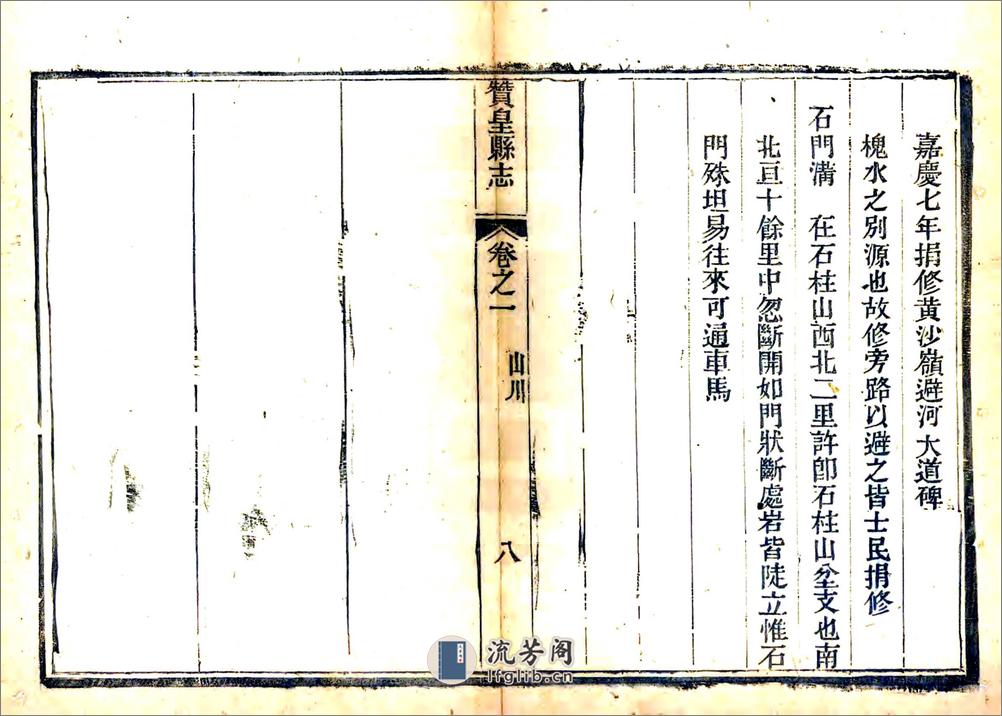 嘉慶七年捐修黄沙嶺避河大道碑
槐水之别源也故修旁路以避之皆士民捐修
石門溝　在石柱山西北二里許卽石柱山分支也南
北亘十餘里中忽斷開如門狀斷處岩皆陡立惟石
門殊坦易往來可通車馬
贊皇縣志
卷之一
山川
八
流芳阁
lfglib.cn